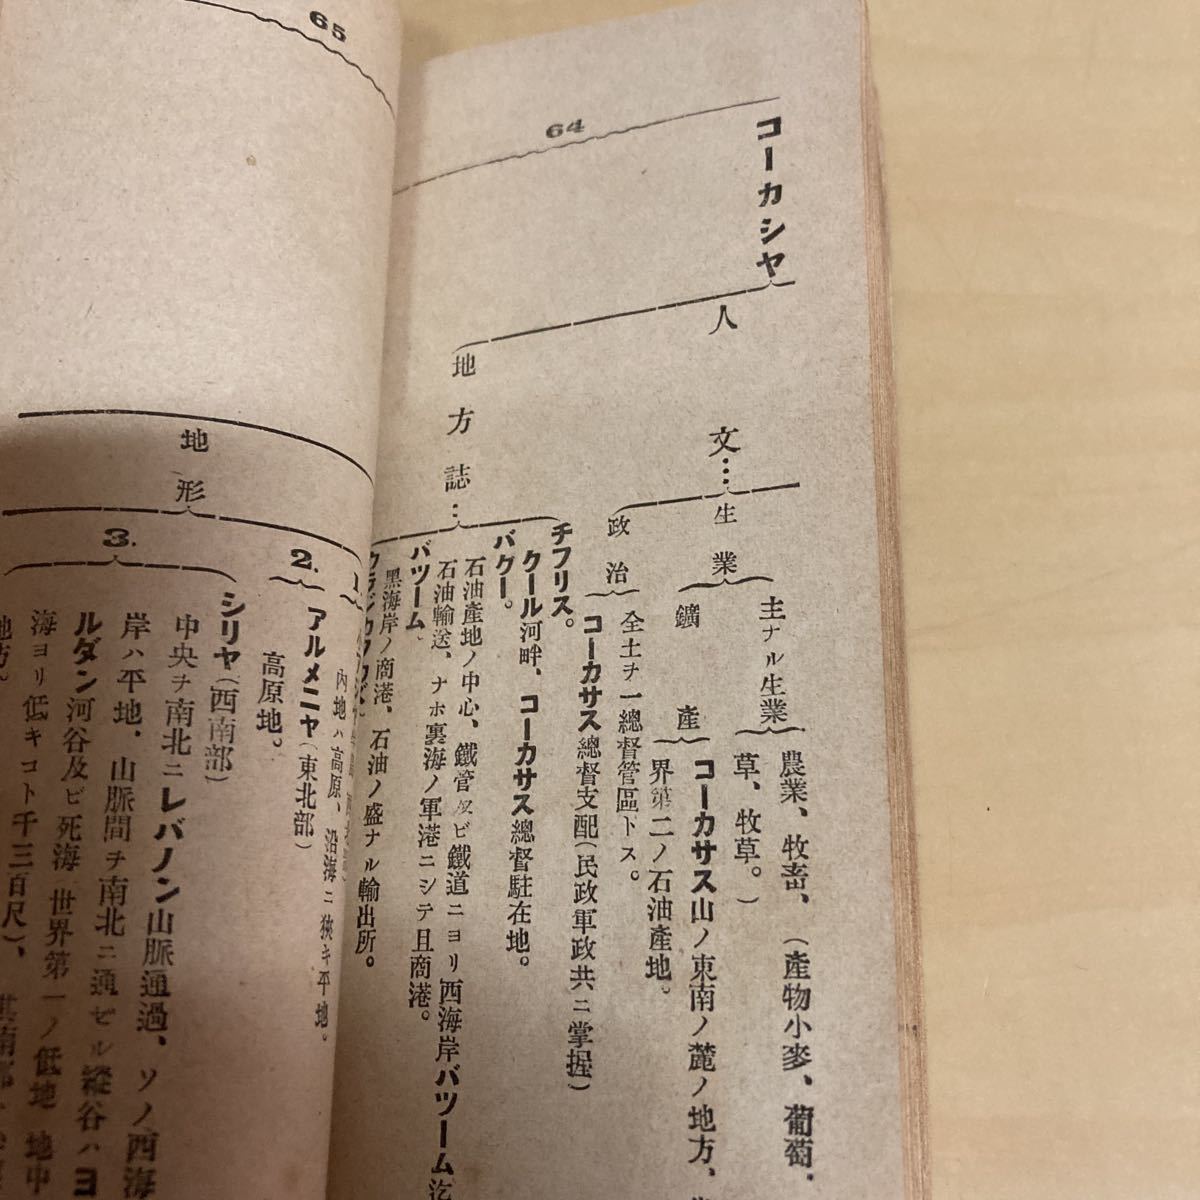 64
コーカシヤ
人文…
生業
主ナル生業
農業、牧畜、(產物小麥、葡萄、
草、牧草。)
鑛產
コーカサス山ノ東南ノ麓ノ地方、
界第二ノ石油產地。
政治
全土ヲ一總督管區トス。
コーカサス總督支配(民政軍政共ニ掌握)
地方誌…
チフリス。
クール河畔、コーカサス總督駐在地。
バクー。
石油產地ノ中心、鐵管及ビ鐵道ニヨリ西海岸バツーム迄
石油輸送、ナホ裏海ノ軍港ニシテ且商港。
バツーム
黑海岸ノ商港、石油ノ盛ナル輸出所。
65
地形
1.
內地ハ高原、沿海ニ狹キ平地。
2.
アルメニヤ(東北部)
高原地。
3.
シリヤ(西南部)
中央ヲ南北ニレバノン山脈通過、ソノ西海
岸ハ平地、山脈間ヲ南北ニ通ゼル縱谷ハヨ
ルダン河谷及ビ死海、世界第一ノ低地 地中
海ヨリ低キコト千三百尺)、
地方)